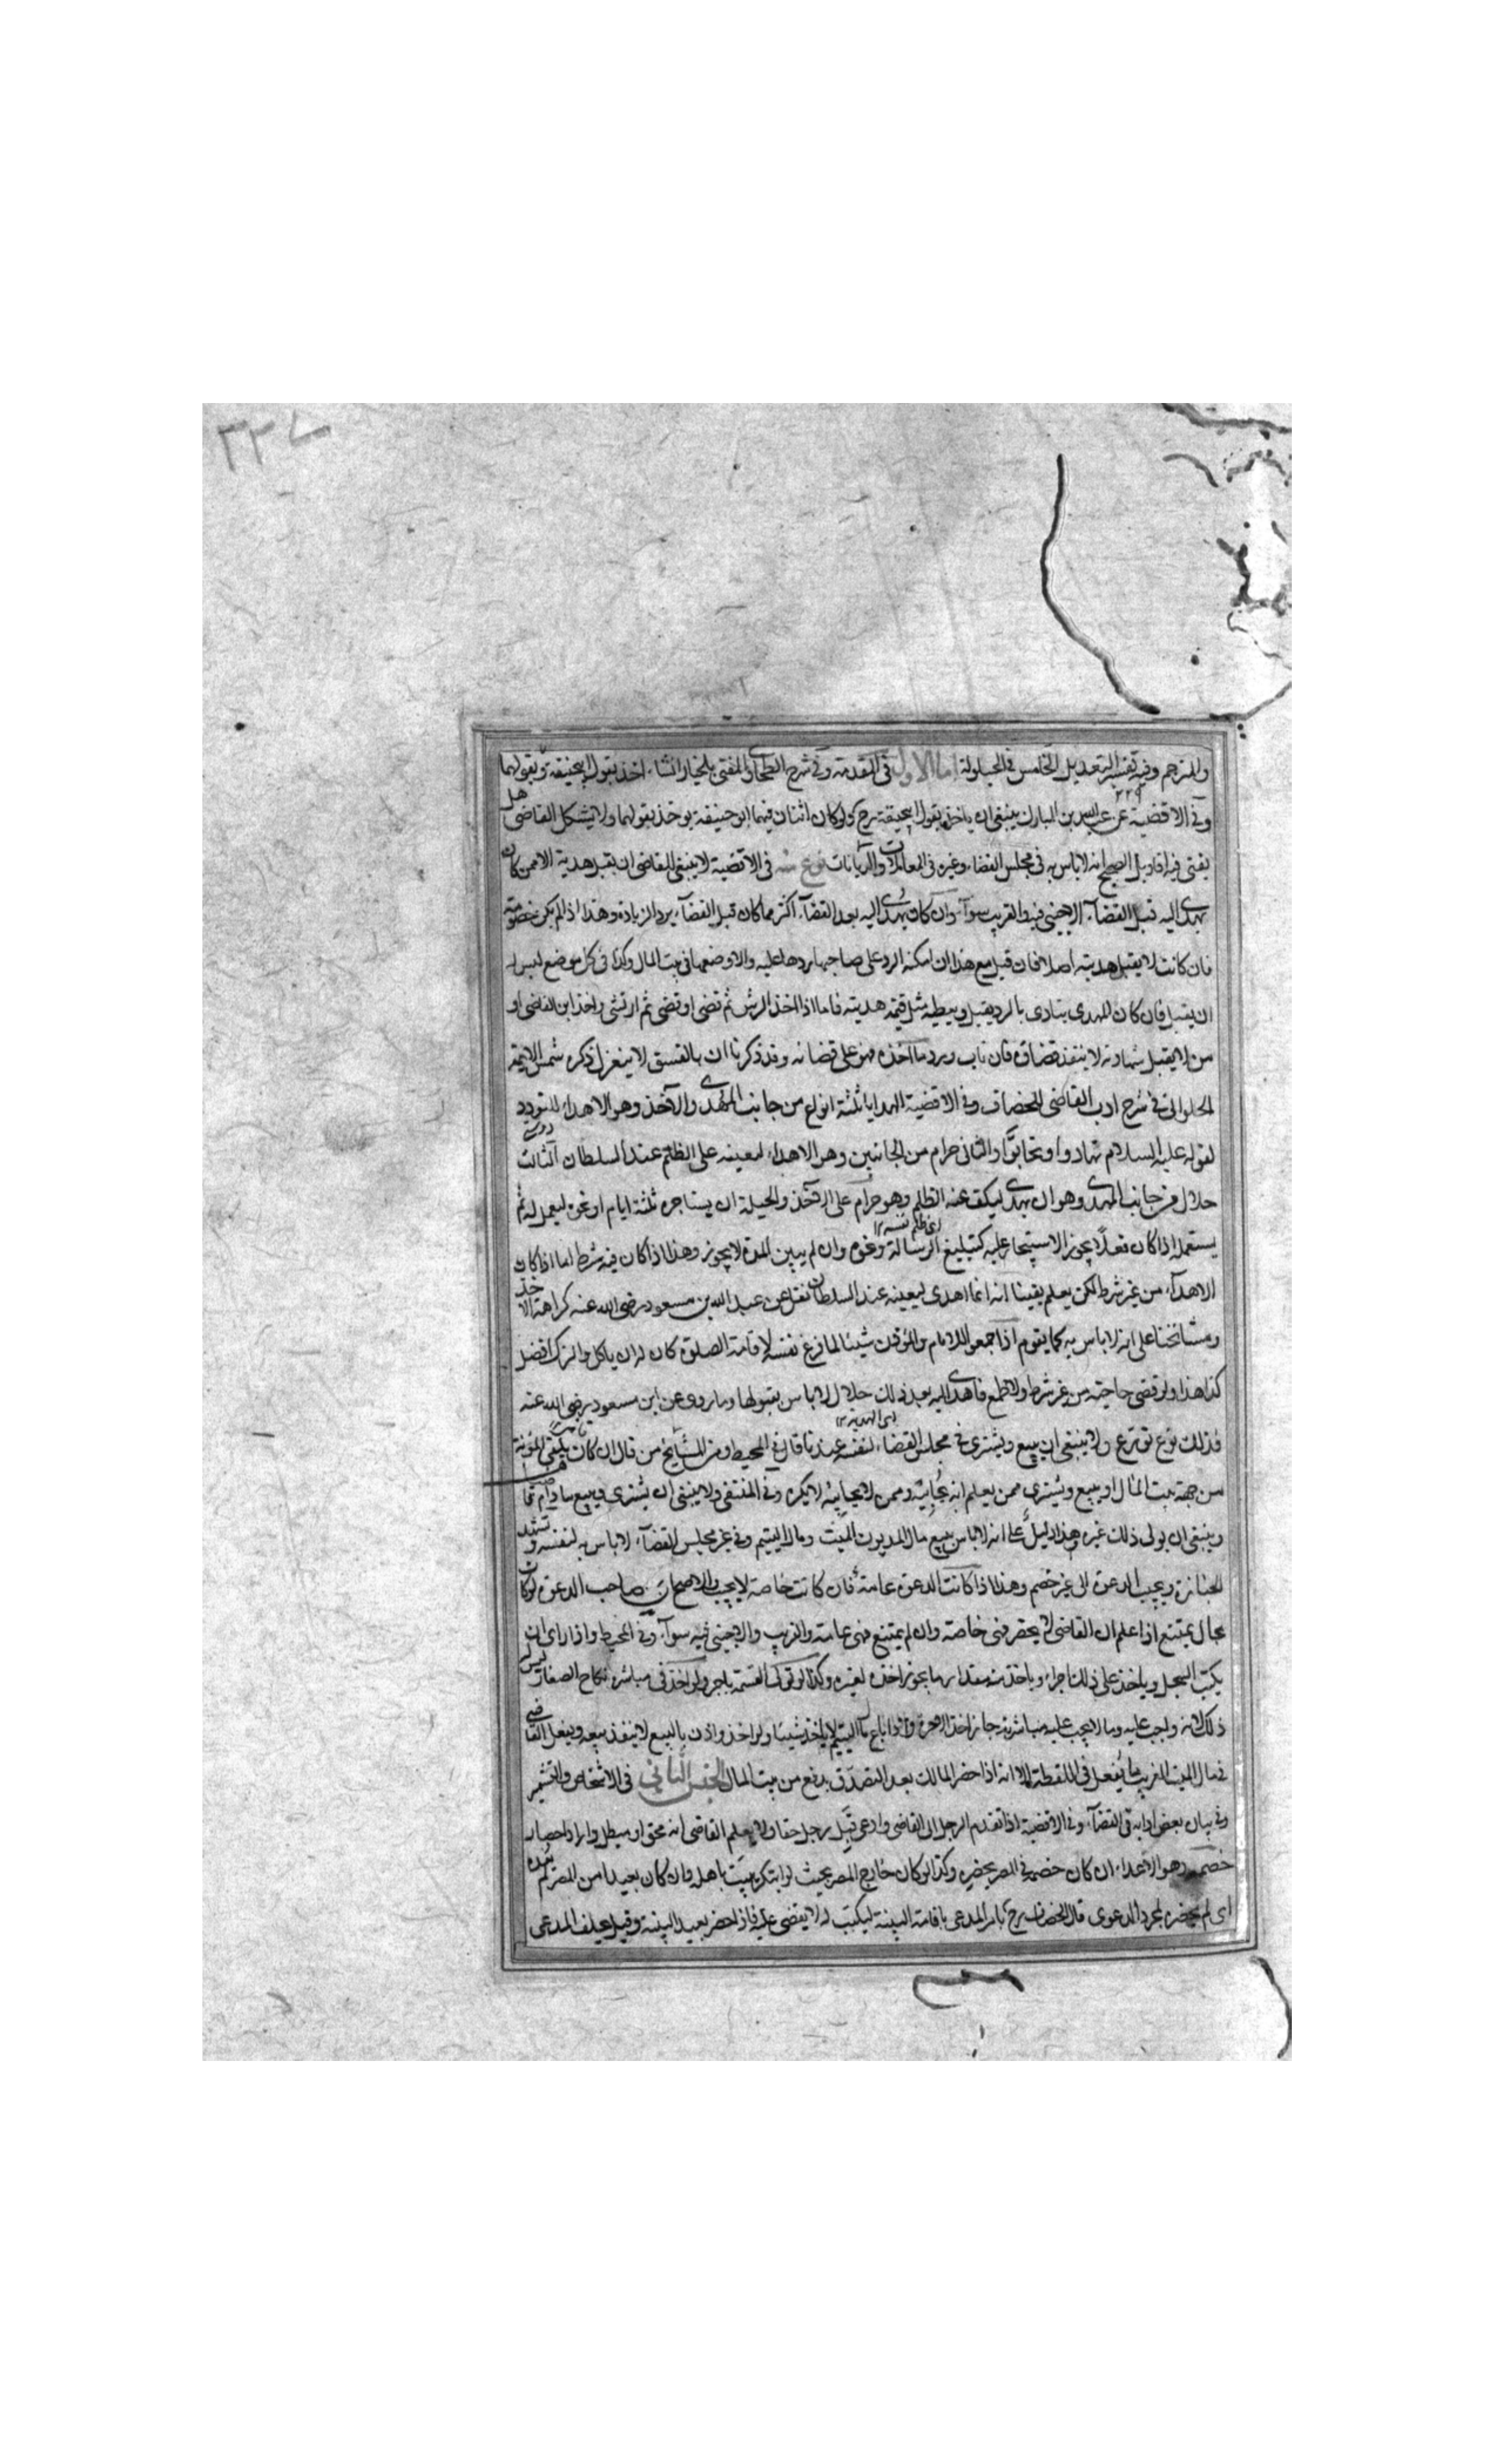 ٢٢٧
والمترجم وفيه تفسير التعديل الخامس في الحيلولة اما الاول في المقدمة وفي شرح الطحاوي المفتي بالخيار ان شاء اخذ بقول ابي حنيفة وبقولهما
وفي الاقضية عن عبد الله بن المبارك ينبغي ان ياخذ بقول ابي حنيفة رح ولو كان اثنان فيهما ابو حنيفة يوخذ بقولهما ولا يشكل القاضي هل
يفتي فيه اقاويل الصحيح انه لا باس به في مجلس القضاء وغيره في المعاملات والديانات نوع منه في الاقضية لا ينبغي للقاضي ان يقبل هدية الا ممن كان
يهدي اليه قبل القضاء الاجنبي فيه والقريب سواء وان كان يهدي اليه بعد القضاء اكثر مما كان قبل القضاء يرد الزيادة وهذا اذا لم يكن خصومة
فان كانت لا يقبل هديته اصلا فان قبل مع هذا ان امكنه الرد على صاحبها ردها عليه والا وضعها في بيت المال وكذا في كل موضع ليس له
ان يقبل فان كان المهدي يتاذى بالرد يقبل ويعطيه مثل قيمة هديته فاما اذا اخذ الرشوة ثم قضى او قضى ثم ارتشى واخذ ابن القاضي او
من لا يقبل شهادته لا ينفذ قضاؤه فان تاب ورد ما اخذه فهو على قضائه وقد ذكرنا ان بالفسق لا ينعزل ذكره شمس الايمة
الحلواني في شرح ادب القاضي للخصاف وفي الاقضية الهدايا ثلثة انواع من جانب المهدي والآخذ وهو الاهداء للتودد
لقوله عليه السلام تهادوا وتحابوا والثاني حرام من الجانبين وهو الاهداء لمعينه على الظلم عند السلطان الثالث
حلال من جانب المهدي وهو ان يهدي ليكف عنه الظلم وهو حرام على الآخذ والحيلة ان يستاجره ثلثة ايام او نحوه ليعمل له ثم
اى ظلم نفسه ١٢
يستعمله اذا كان فعلا يجوز الاستيجار عليه كتبليغ الرسالة ونحوه وان لم يبين المدة لا يجوز وهذا اذا كان فيه شرط اما اذا كان
الاهداء من غير شرط لكن يعلم يقينا انه انما اهدى ليعينه عند السلطان نقل عن عبد الله بن مسعود رضي الله عنه كراهة الاخذ
ومشائخنا على انه لا باس به كما يقوم اذا جمعوا للامام والمؤذن شيئا لما فرغ نفسه لاقامة الصلوة كان له ان ياكل والترك افضل
كذا هذا ولو قضى حاجته من غير شرط ولا طمع فاهدي اليه بعد ذلك حلال لا باس بقبولها وما روى عن ابن مسعود رضي الله عنه
اى الهدية ١٢
فذلك نوع تورع ولا ينبغي ان يبيع ويشتري في مجلس القضاء لنفسه عندنا قال في المحيط ومن المشايخ من قال ان كان يكفي المؤنة
من جهة بيت المال او يبيع ويشتري ممن يعلم انه يحابيه وممن لا يحابيه لا يكره وفي المنتقى ولا ينبغي ان يشتري ويبيع ما دام قاضيا
وينبغي ان يولى ذلك غيره وهذا دليل على انه لا باس ببيع مال المديون الميت ومال اليتيم وفي غير مجلس القضاء لا باس به لنفسه وتشهد
الجنازة ويجيب الدعوة الى غير خصم وهذا اذا كانت الدعوة عامة فان كانت خاصة لا يجيب والاصح ان صاحب الدعوة لو كان
بحال يمتنع اذا علم ان القاضي لا يحضر فهي خاصة وان لم يمتنع فهي عامة والقريب والاجنبي فيه سواء وفي المحيط واذا راى ان
يكتب السجل وياخذ على ذلك اجراء وياخذ منه مقدار ما يجوز اخذه لغيره وكذا لو تولى القسمة باجر ولو اخذ في مباشرة نكاح الصغار ليس له
ذلك لانه واجب عليه وما لا يجب عليه مباشرته جاز اخذ الاجرة واذا باع مال اليتيم لا ياخذ شيئا ولو اخذ واذن بالبيع لا ينفذ بيعه ويفعل القاضي
في مال الميت الغريب ما يفعل في اللقطة الا انه اذا حضر المالك بعد التصدق يدفع من بيت المال الجنس الثاني في الاشخاص والتشمير
وفي بيان بعض ادابه في القضاء وفي الاقضية اذا تقدم الرجل الى القاضي وادعى قبل رجل حقا ولا يعلم القاضي انه محق او مبطل واراد احضار
خصمه وهو الاعداء ان كان خصمه في المصر يحضره وكذا لو كان خارج المصر بحيث لو ابتكر يبيت باهله وان كان بعيدا من المصر لم يعده
اى لم يحضره لمجرد الدعوى قال الخصاف رح يامر المدعي باقامة البينة ليكتب له لا يقضى عليه فاذا حضر يعيد البينة وقيل يحلف المدعي